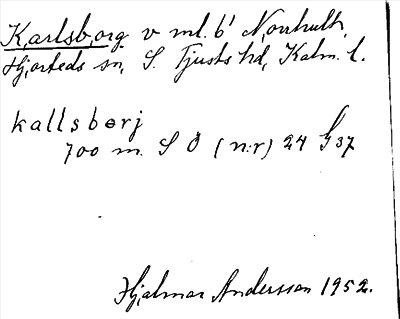 Karlsborg v ml. 6' Norrhult,
Hjorteds sn, S. Tjusts hd, Kalm. l.
kallsborj
700 m. S Ö (n:r) 24 G 37
Hjalmar Andersson 1952.